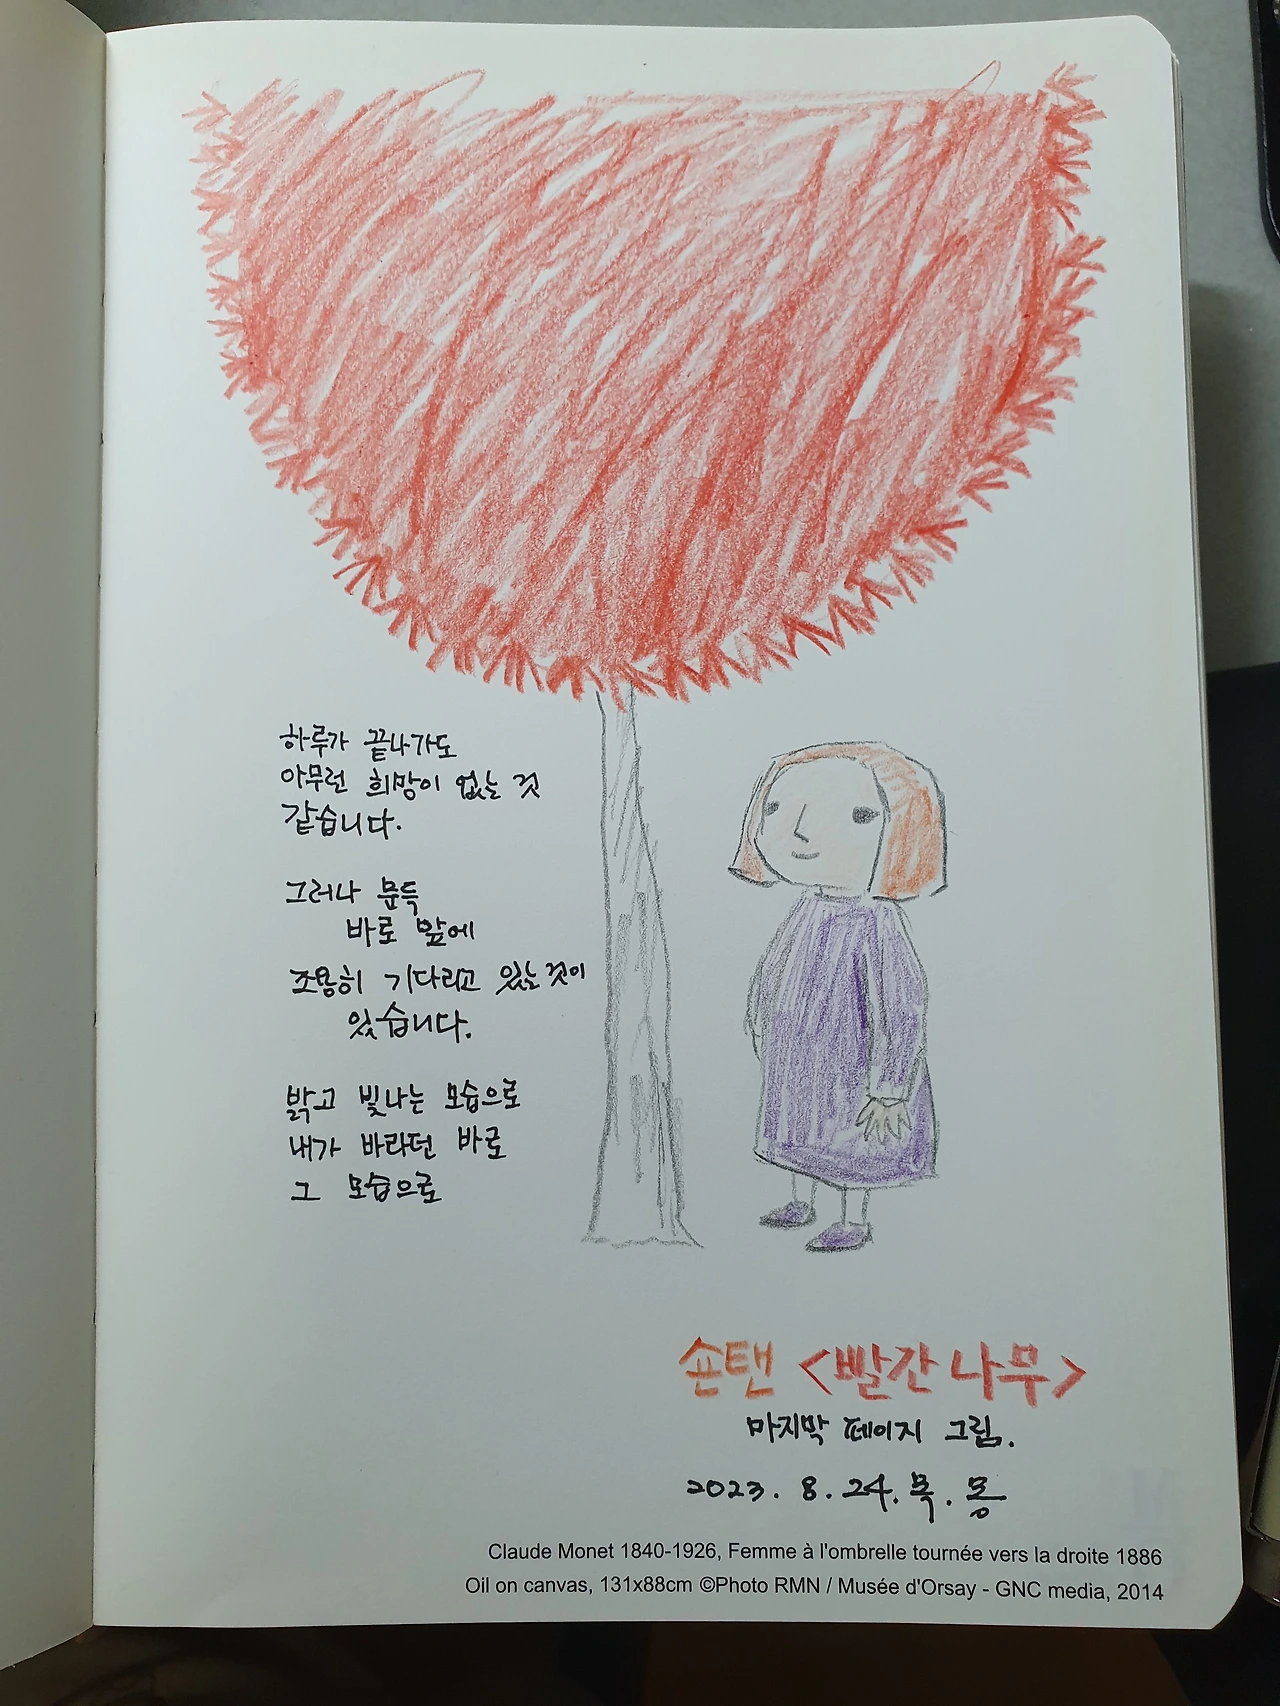 하루가 끝나가도
아무런 희망이 없는 것
같습니다.
그러나 문득
바로 앞에
조용히 기다리고 있는 것이
있습니다.
밝고 빛나는 모습으로
내가 바라던 바로
그 모습으로
숀탠 <빨간 나무>
마지막 페이지 그림.
2023. 8. 24. 목. 몽
Claude Monet 1840-1926, Femme à l'ombrelle tournée vers la droite 1886
Oil on canvas, 131x88cm ©Photo RMN / Musée d'Orsay - GNC media, 2014